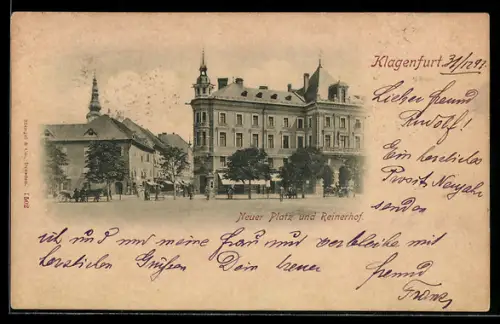 Klagenfurt. 31/12 97.
Lieber Freund
Rudolf!
Ein herzliches
Prosit Neujahr
senden
Neuer Platz und Reinerhof.
ich und meine Frau und verbleibe mit
herzlichen Grüßen Dein treuer
Freund
Franz